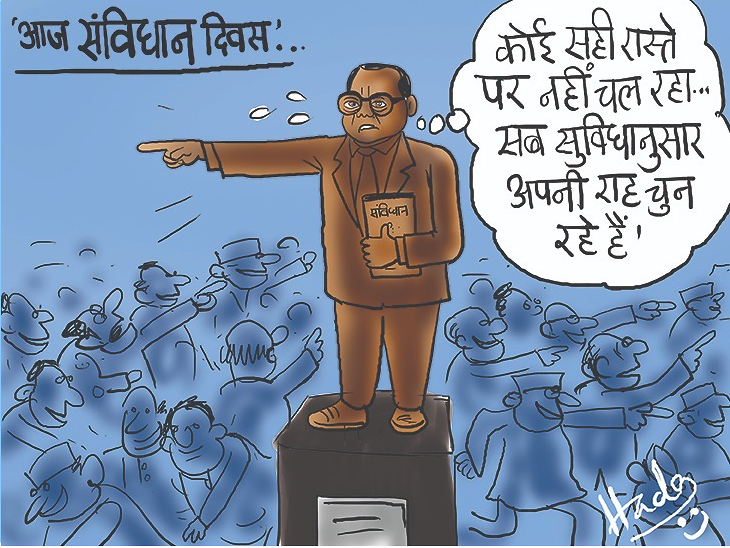 'आज संविधान दिवस'...
कोई सही रास्ते
पर नहीं चल रहा...
सब सुविधानुसार
अपनी राह चुन
रहे हैं'
संविधान
Hada